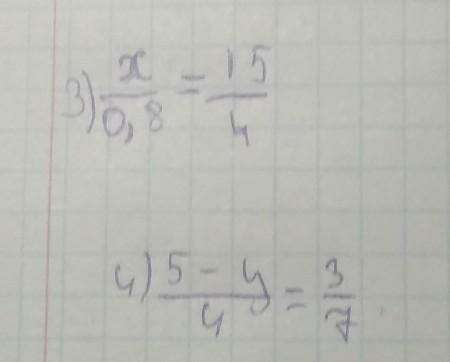 3) x/0,8 = 15/4
4) (5 - y)/4 = 3/7